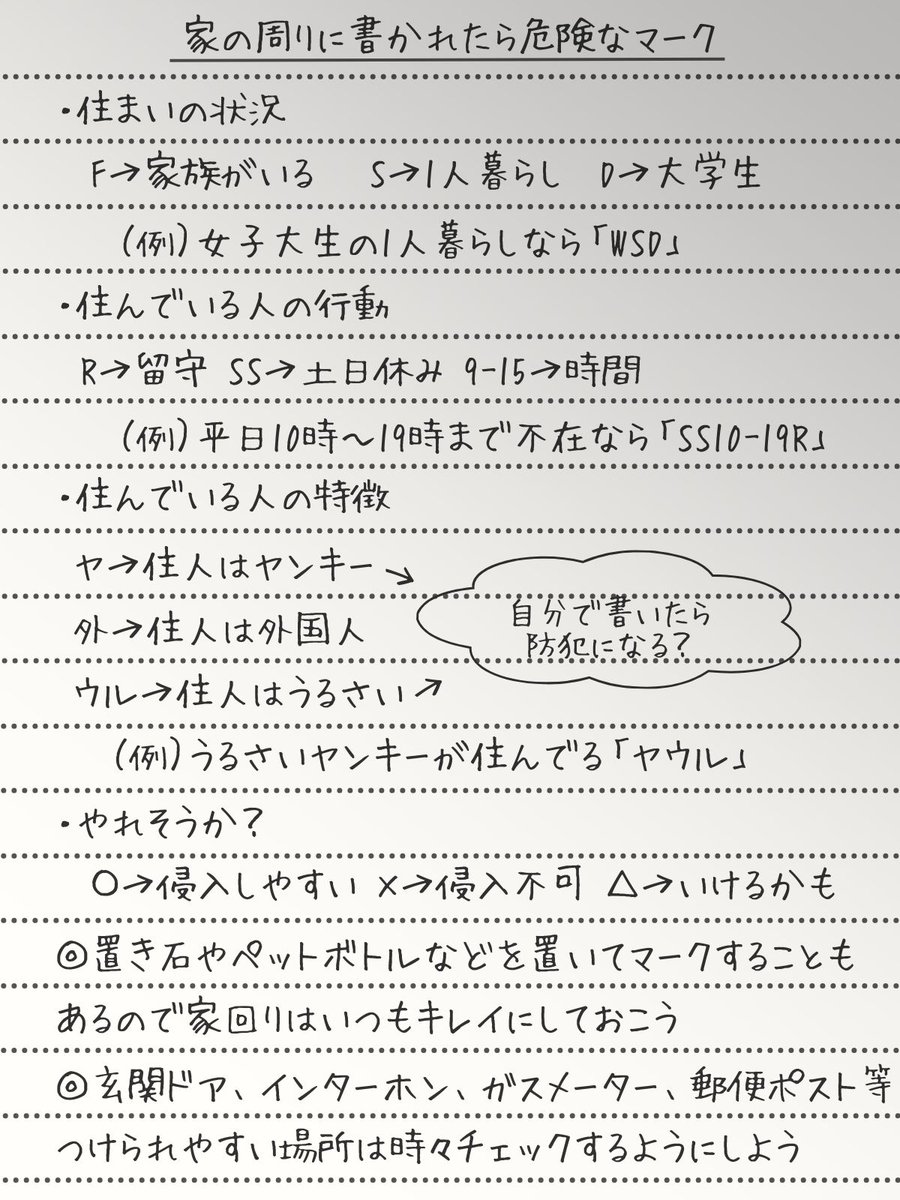 家の周りに書かれたら危険なマーク
・住まいの状況
F→家族がいる S→1人暮らし D→大学生
(例)女子大生の1人暮らしなら「WSD」
・住んでいる人の行動
R→留守 SS→土日休み 9-15→時間
(例)平日10時〜19時まで不在なら「SS10-19R」
・住んでいる人の特徴
ヤ→住人はヤンキー→
外→住人は外国人
ウル→住人はうるさい→
自分で書いたら
防犯になる?
(例)うるさいヤンキーが住んでる「ヤウル」
・やれそうか?
○→侵入しやすい ×→侵入不可 △→いけるかも
◎置き石やペットボトルなどを置いてマークすることも
あるので家回りはいつもキレイにしておこう
◎玄関ドア、インターホン、ガスメーター、郵便ポスト等
つけられやすい場所は時々チェックするようにしよう